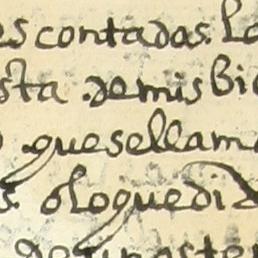 es contadas. Lo
sta de mis bie
quese llama
s. o loque di